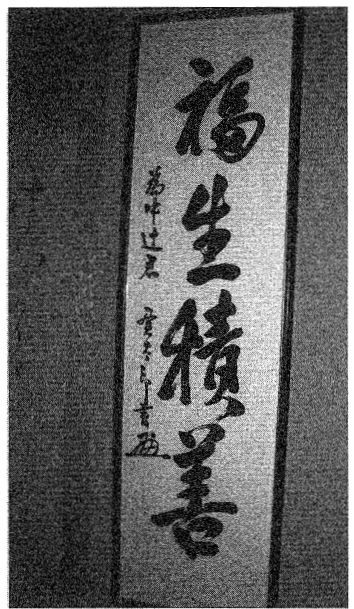 福生積善
為中辻君 太郎書